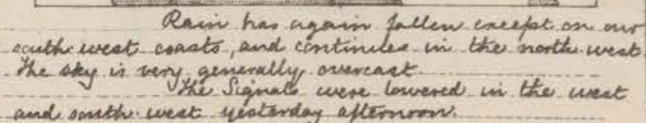 Rain has again fallen except on our
south west coasts, and continues in the north-west
The sky is very generally overcast.
The Signals were lowered in the west
and south-west yesterday afternoon.